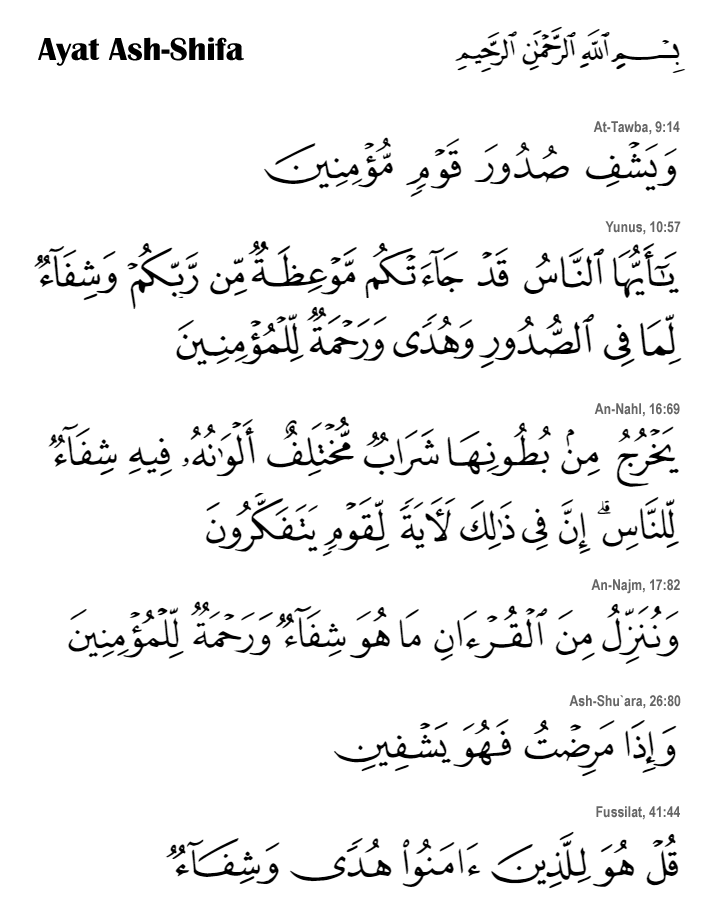 Ayat Ash-Shifa
بِسْمِ ٱللَّهِ ٱلرَّحْمَٰنِ ٱلرَّحِيمِ
At-Tawba, 9:14
وَيَشْفِ صُدُورَ قَوْمٍ مُّؤْمِنِينَ
Yunus, 10:57
يَٰٓأَيُّهَا ٱلنَّاسُ قَدْ جَآءَتْكُم مَّوْعِظَةٌ مِّن رَّبِّكُمْ وَشِفَآءٌ
لِّمَا فِى ٱلصُّدُورِ وَهُدًى وَرَحْمَةٌ لِّلْمُؤْمِنِينَ
An-Nahl, 16:69
يَخْرُجُ مِنۢ بُطُونِهَا شَرَابٌ مُّخْتَلِفٌ أَلْوَٰنُهُۥ فِيهِ شِفَآءٌ
لِّلنَّاسِ ۗ إِنَّ فِى ذَٰلِكَ لَءَايَةً لِّقَوْمٍ يَتَفَكَّرُونَ
An-Najm, 17:82
وَنُنَزِّلُ مِنَ ٱلْقُرْءَانِ مَا هُوَ شِفَآءٌ وَرَحْمَةٌ لِّلْمُؤْمِنِينَ
Ash-Shu`ara, 26:80
وَإِذَا مَرِضْتُ فَهُوَ يَشْفِينِ
Fussilat, 41:44
قُلْ هُوَ لِلَّذِينَ ءَامَنُوا۟ هُدًى وَشِفَآءٌ